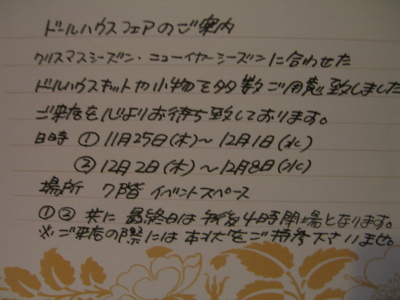 ドールハウスフェアのご案内
クリスマスシーズン・ニューイヤーシーズンに合わせた
ドルハウスキットや小物を多数ご用意致しました
ご来店を心よりお待ち致しております。
日時 ① 11月25日(木)〜 12月1日(水)
② 12月2日(木)〜12月8日(水)
場所 7階 イベントスペース
①② 共に 最終日は午後4時閉場となります。
※ご来店の際には本状をご持参下さいませ。